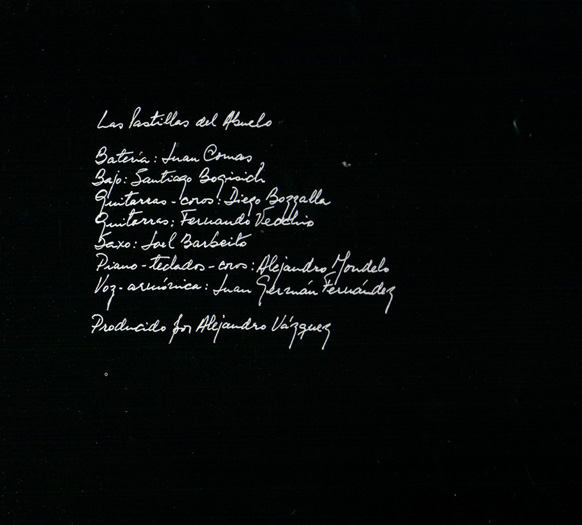 Las Pastillas del Abuelo
Batería: Juan Comas
Bajo: Santiago Bogisich
Guitarras-coros: Diego Bozzalla
Guitarras: Fernando Vecchio
Saxo: Joel Barbeito
Piano-teclados-coros: Alejandro Mondelo
Voz-armónica: Juan Germán Fernández
Producido por Alejandro Vázquez